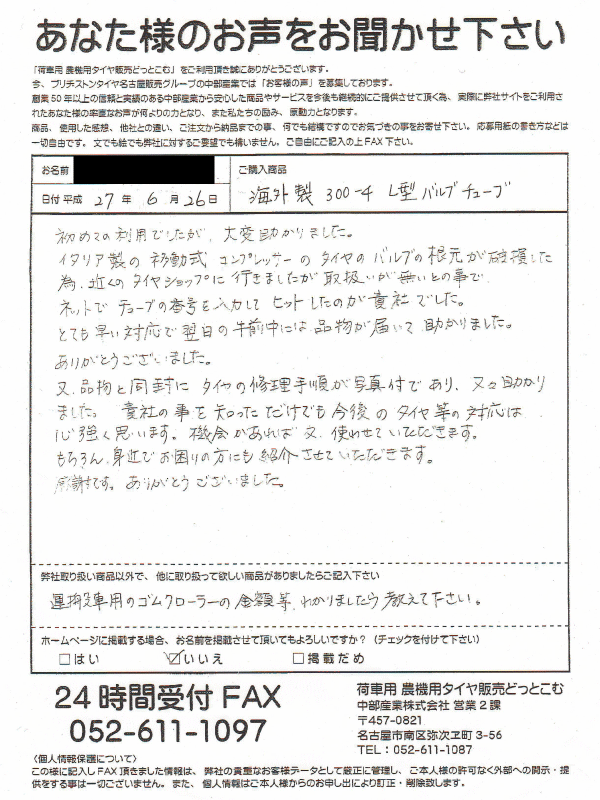 あなた様のお声をお聞かせ下さい
「荷車用 農機用タイヤ販売どっとこむ」をご利用頂き誠にありがとうございます。
今、ブリヂストンタイヤ名古屋販売グループの中部産業では「お客様の声」を募集しております。
創業50年以上の信頼と実績のある中部産業から安心した商品やサービスを今後も継続的にご提供させて頂く為、実際に弊社サイトをご利用さ
れたあなた様の率直なお声が何よりの力となり、また私たちの励み、原動力となります。
商品、使用した感想、他社との違い、ご注文から納品までの事、何でも結構ですのでお気づきの事をお寄せ下さい。応募用紙の書き方などは
一切自由です。文でも絵でも弊社に対するご要望でも構いません。ご自由にご記入の上FAX下さい。
お名前
ご購入商品
日付 平成 27 年 6 月 26 日
海外製 300-4 L型バルブチューブ
初めての利用でしたが、大変助かりました。
イタリア製の移動式コンプレッサーのタイヤのバルブの根元が破損した
為、近くのタイヤショップに行きましたが取扱いが無いとの事で、
ネットでチューブの番号を入力してヒットしたのが貴社でした。
とても早い対応で翌日の午前中には品物が届いて助かりました。
ありがとうございました。
又、品物と同封にタイヤの修理手順が写真付であり、又々助かり
ました。貴社の事を知っただけでも今後のタイヤ等の対応は
心強く思います。機会があれば又、使わせていただきます。
もちろん、身近でお困りの方にも紹介させていただきます。
感謝です。ありがとうございました。
弊社取り扱い商品以外で、他に取り扱って欲しい商品がありましたらご記入下さい
運搬車用のゴムクローラーの金額等、わかりましたら教えて下さい。
ホームページに掲載する場合、お名前を掲載させて頂いてもよろしいですか？（チェックを付けて下さい）
□はい ☑いいえ □掲載だめ
24時間受付FAX
052-611-1097
荷車用 農機用タイヤ販売どっとこむ
中部産業株式会社 営業2課
〒457-0821
名古屋市南区弥次ヱ町3-56
TEL：052-611-1087
〈個人情報保護について〉
この様に記入しFAX頂きました情報は、弊社の貴重なお客様データとして厳正に管理し、ご本人様の許可なく外部への開示・提
供をする事は一切ございません。また、個人情報はご本人様からのお申し出により訂正・削除致します。